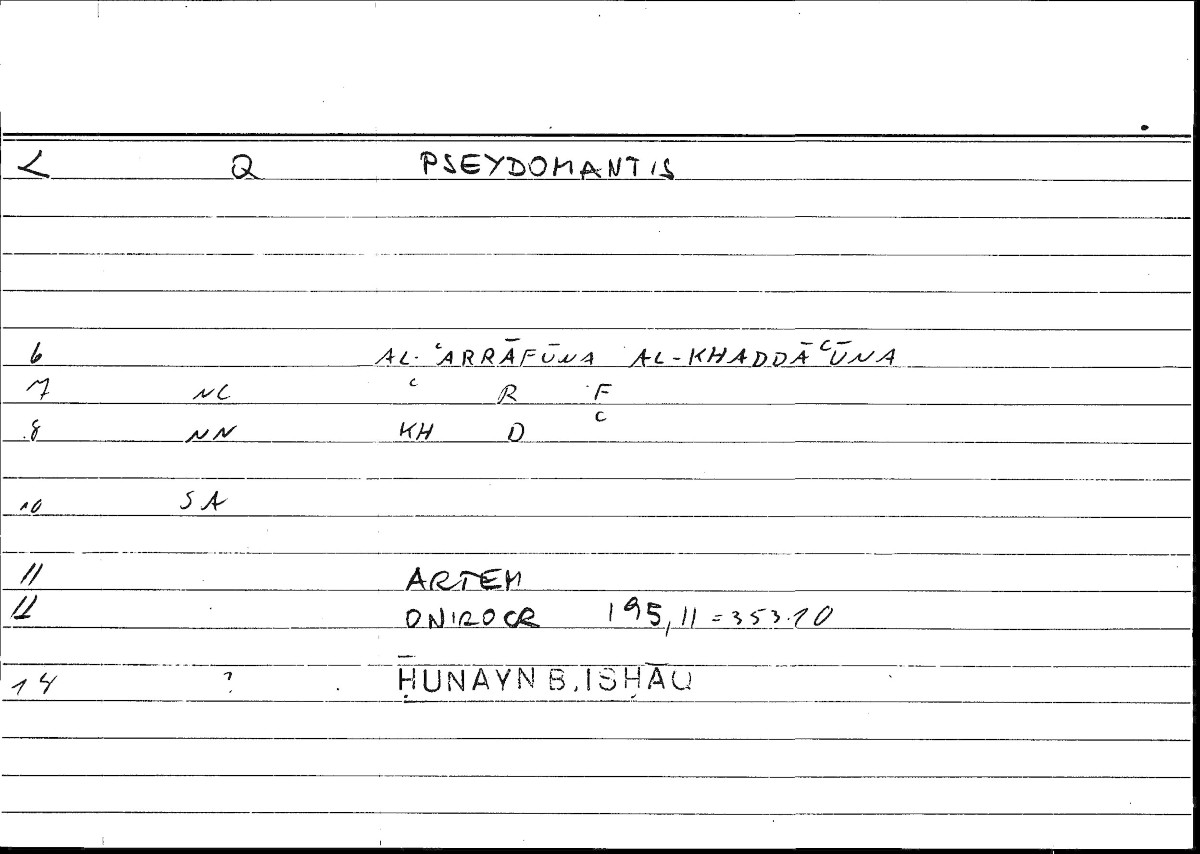 < Q PSEYDOMANTIS
6 AL-ʿARRĀFŪNA AL-KHADDĀʿŪNA
7 NC ʿ R F
8 NN KH D ʿ
10 SA
11 ARTEM
12 ONIROCR 195,11 = 353.10
14 ? ḤUNAYN B. ISḤĀQ